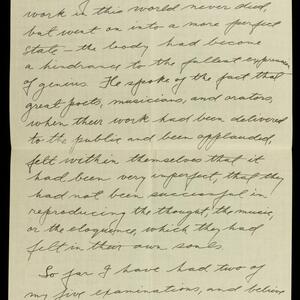 work in this world never died,
but went on into a more perfect
state – the body had become
a hindrance to the fullest expression
of genius. He spoke of the fact that
great poets, musicians, and orators,
when their work had been delivered
to the public and been applauded,
felt within themselves that it
had been very imperfect, that they
had not been successful in
reproducing the thought, the music,
or the eloquence, which they had
felt in their own souls.
So far I have had two of
my five examinations, and believe